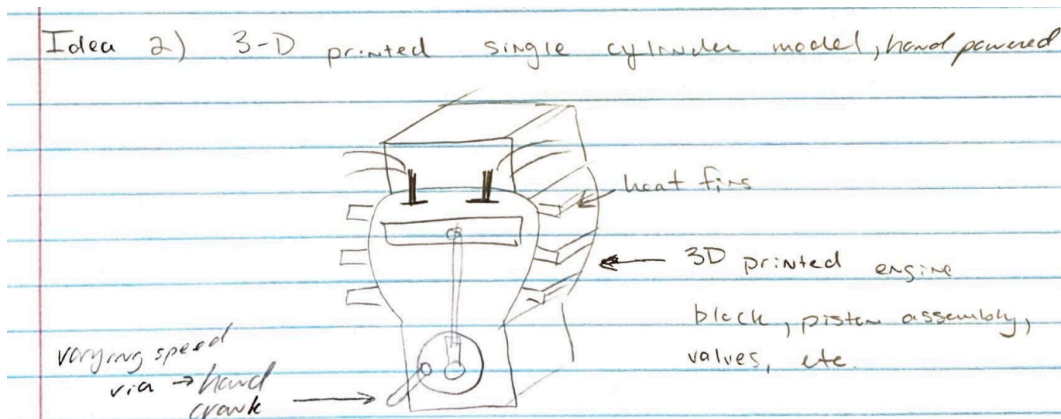 Idea 2) 3-D printed single cylinder model, hand powered
heat fins
3D printed engine
block, piston assembly,
valves, etc.
varying speed
via → hand
crank